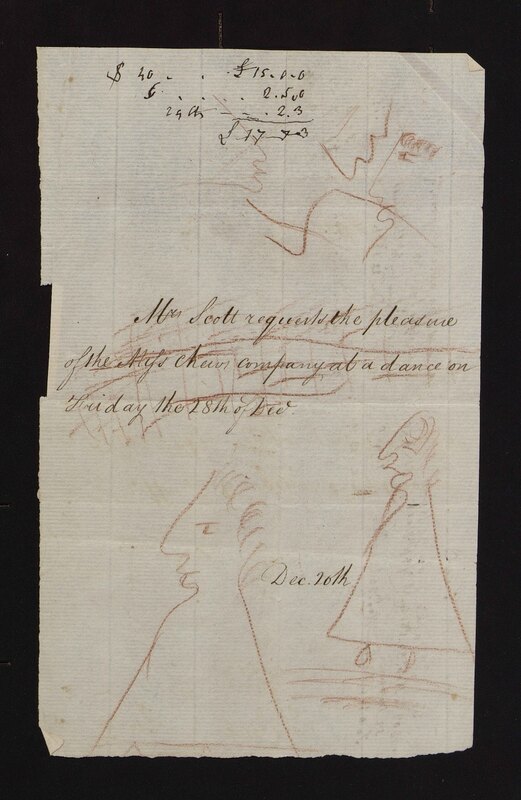 $ 40 . . . £ 15.0.0
6 . . . . 2.5.0
29 cts - - . 2.3
£ 17 7 3
Mrs Scott requests the pleasure
of the Miss Chews company at a dance on
Friday the 28th of Dec
Dec. 20th